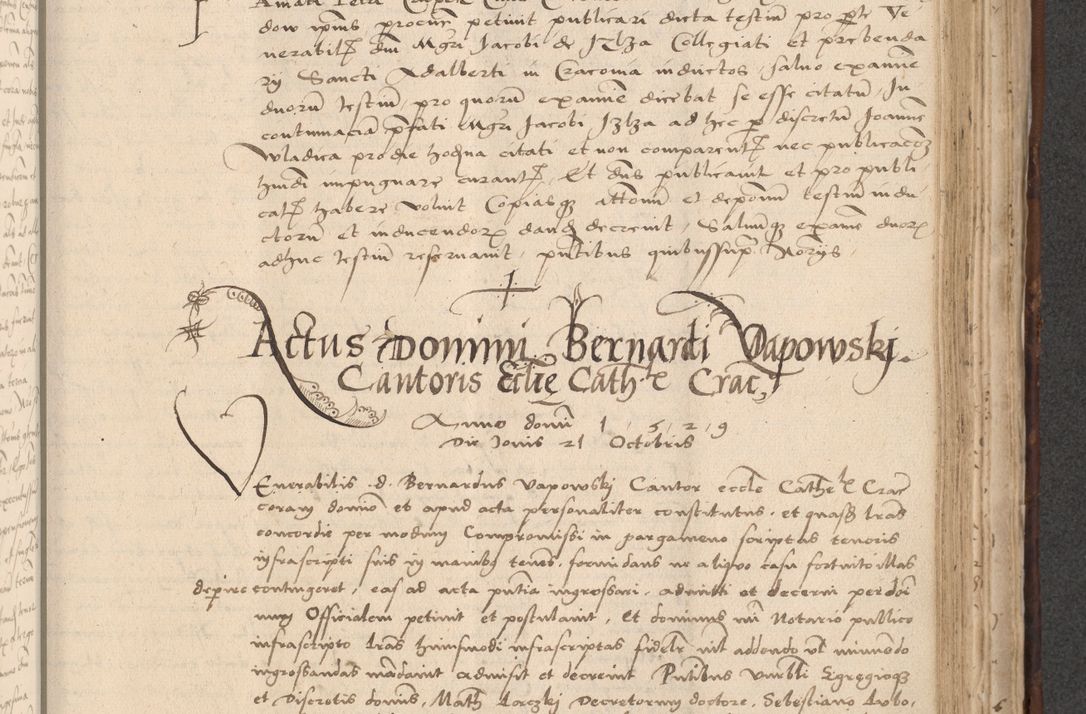 dow ipius procur petiuit publicari dicta testium pro parte Ve
nerabilis dm Mgri Jacobi de Jlza Collegiati et prebenda
rij Sancti Adalberti in Cracouia inductos, saluo examine
duorum testium, pro quorum examine dicebat se esse citatum, In
contumaciam prefati Mgri Jacobi Jzlza ad hec per discretum Joannem
Wladica pro die hodierna citati et non comparentis nec publicacoem
hmoi impugnare curantis, Et dns publicauit et pro publi
catis habere voluit Copiasque attonum et deponum testium indu
ctorum et inducendorum dandas decreuit, Saluumque examen duorum
adhuc testium reseruauit, pntibus quibussupra Norijs
Actus Domini Bernardi Vapowskj
Cantoris Eclie Cath: Crac,
Anno domi 1, 5, 2, 9
Die Jouis 21 Octobris
VEnerabilis d. Bernardus Vapowskj Cantor eccle Cathe Crac
coram domino et apud acta personaliter constitutus, et quasdam lras
concordie per modum Compromissi in pargameno scriptas tenoris
infrascripti suis in manibus tenens, formidans ne aliquo casu fortuito illas
deperire contingeret, eas ad acta pntia ingrossari, admitti et decerni per doi
num Officialem petiuit et postulauit, Et dominus mi Notario publico
infrascripto lras huiusmodi infrascriptas fideliter nil addendo vel minuendo
ingrossandas mandauit admisit et decreuit Pntibus Venbli Egregioque
et Discretis dominis, Math Decretorum doctore, Sebestiano